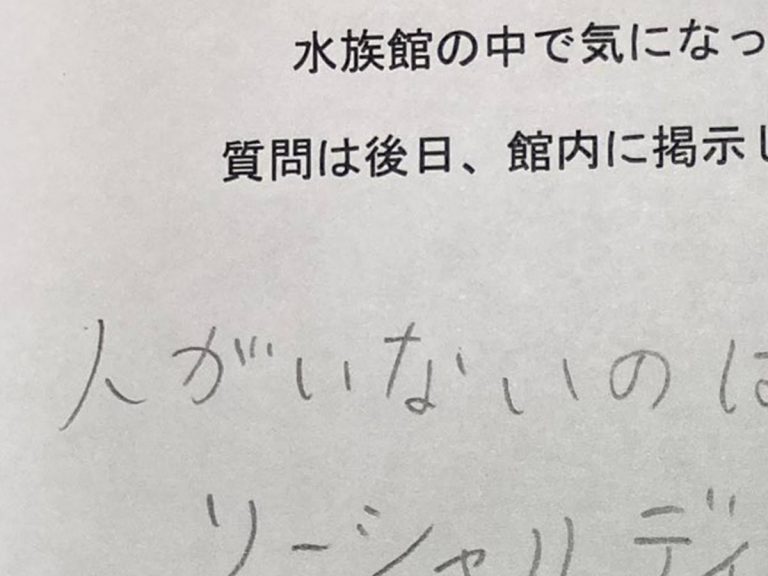 水族館の中で気になっ
質問は後日、館内に掲示し
人がいないのは
ソーシャルディ